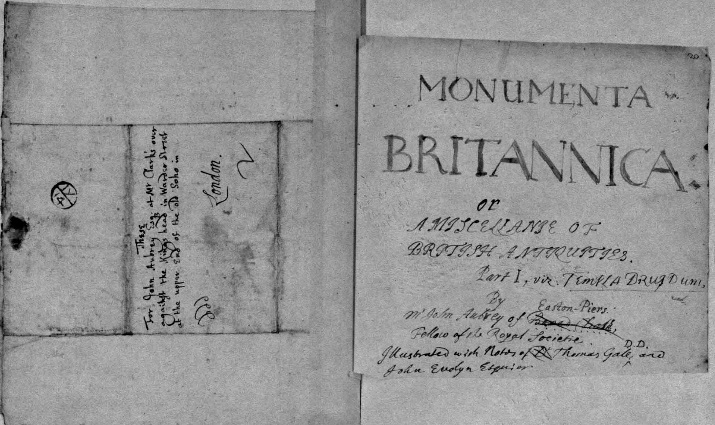 These
For John Aubrey Esq at Mr Clark's over
against the Kings head in Wardor Street
at the upper End of the old Soho in
London.
MONUMENTA
BRITANNICA.
or
A MISCELLANIE OF
BRITISH ANTIQUITIES.
Part I, viz. TEMPLA DRUIDUM,
By
Mr John Aubrey of Easton-Piers
Fellow of the Royal Societie.
Illustrated with Notes of Thomas Gale, D.D. and
John Evelyn Esquior